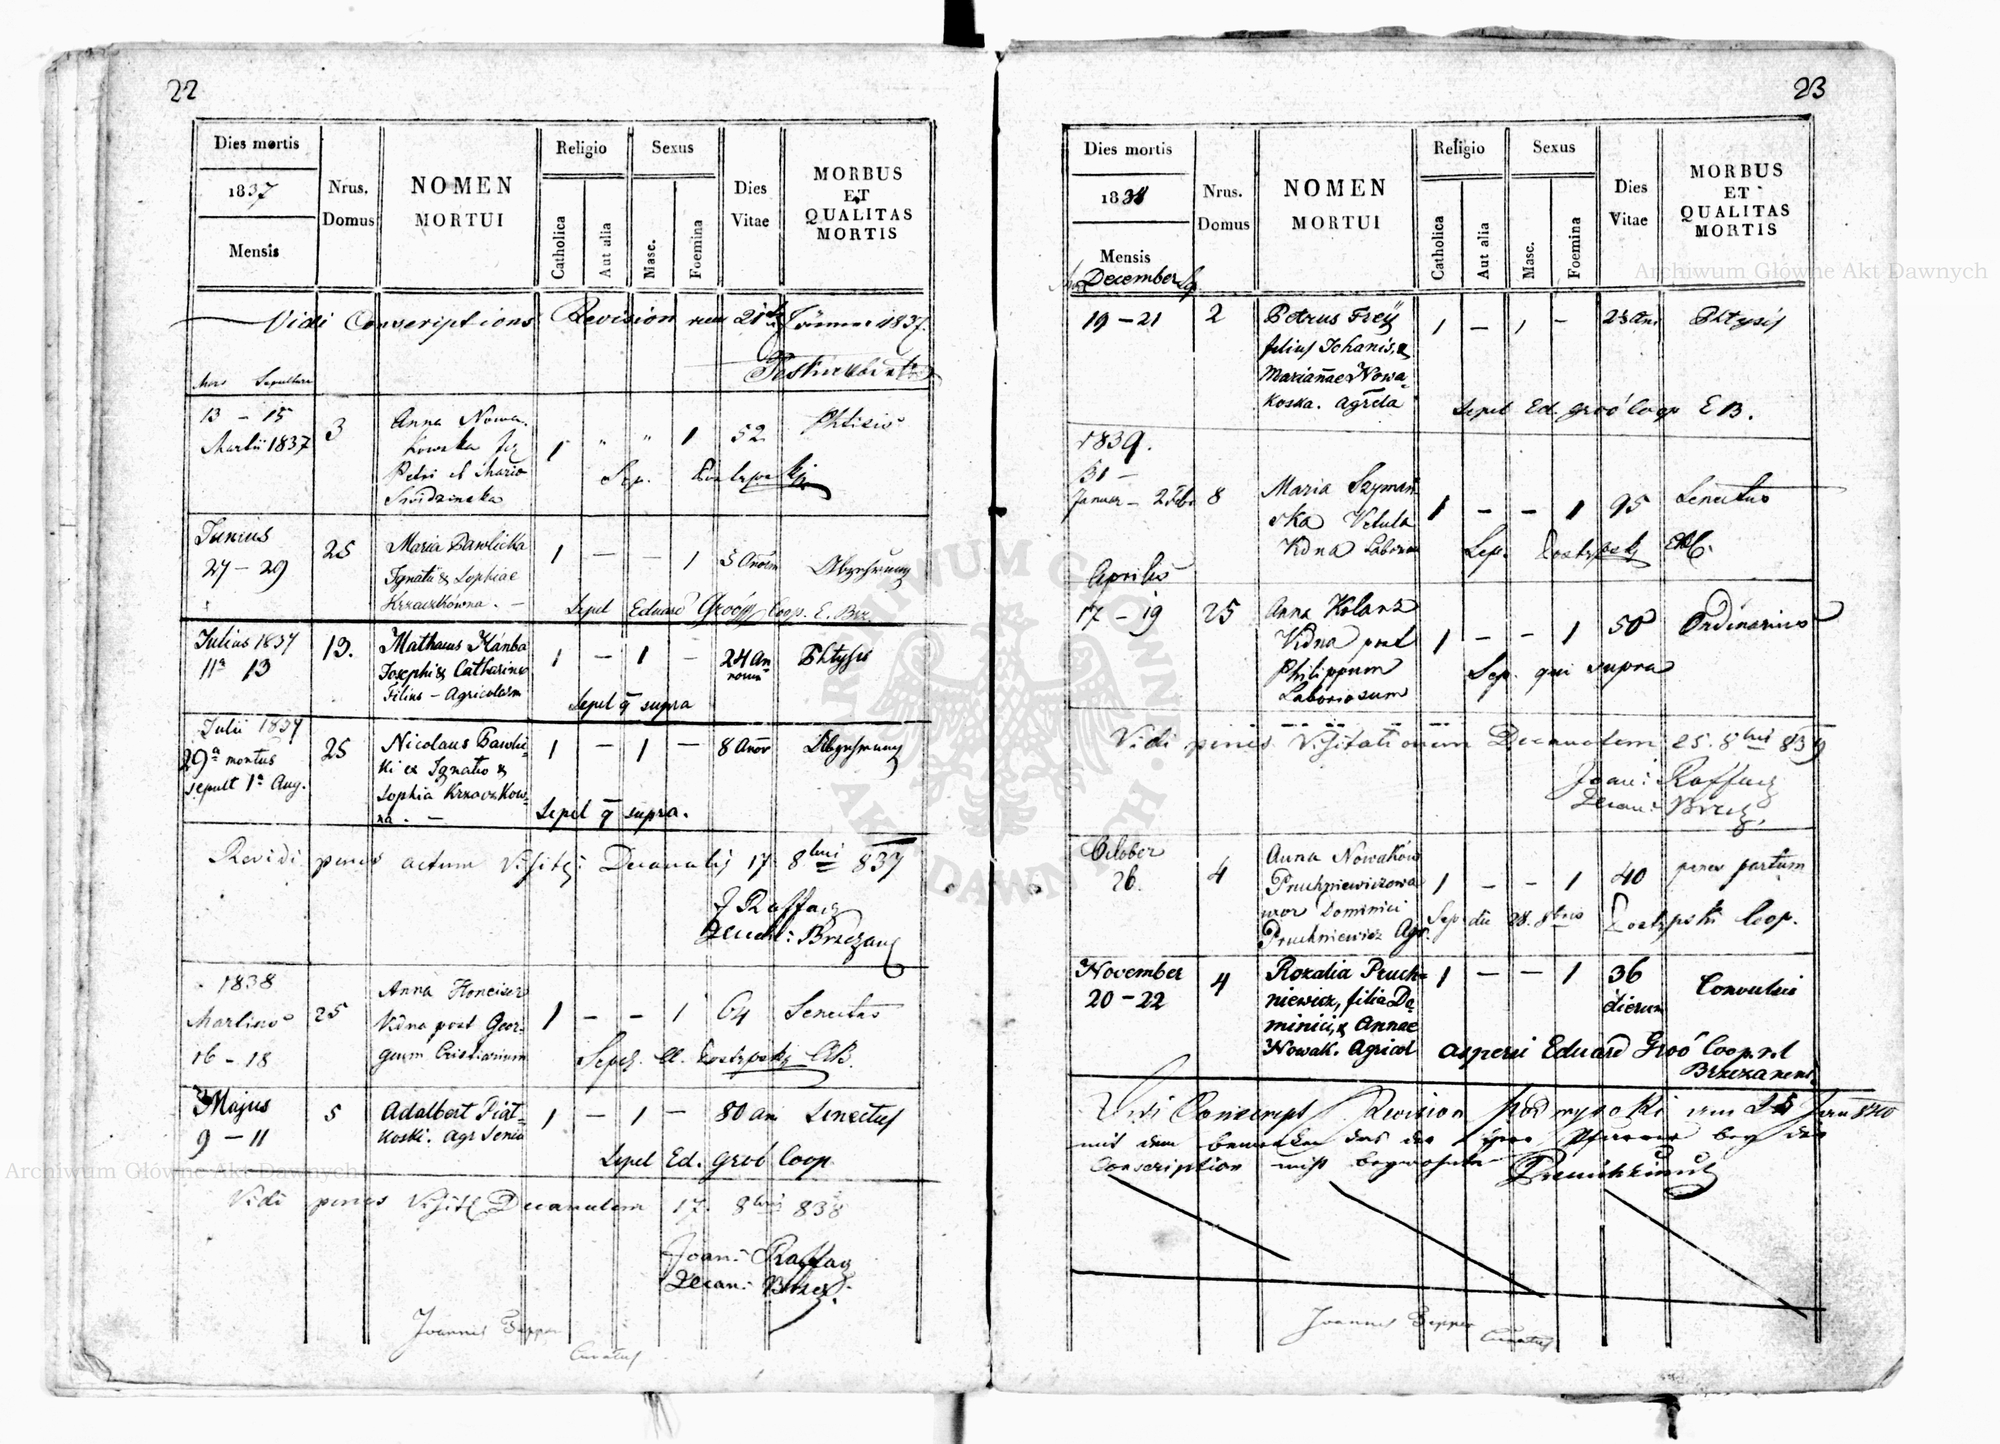 22
Dies mortis
1837
Mensis
Nrus.
Domus
NOMEN
MORTUI
Religio
Catholica
Aut alia
Sexus
Masc.
Foemina
Dies
Vitae
MORBUS
ET
QUALITAS
MORTIS
Vidi Conscriptions Revision 21 Jänner 1837.
Mors Sepulturae
13 – 15
Martii 1837
3
Anna Nowa
kowska
Petri et Maria
1 " " 1
52
Phtisis
Sep.
Junius
27 – 29
25
Maria Pawlicka
Ignatii & Sophiae
Krzaczkówna. –
1 — — 1
5 Anorum
Abzehrung
Sepel Eduard Groó Coop. E. Brz.
Julius 1837
11a 13
13.
Mathaeus Kánba
Josephi & Catharinae
Filius – Agricolarum
1 — 1 —
24 An
norum
Phtysis
Sepel q supra
Julii 1837
29a mortus
sepult 1a Aug.
25
Nicolaus Pawlic
ki ex Ignatio &
Sophia Krzaczkow-
na. –
1 — 1 —
8 Anor
Abzehrung
Sepel q supra.
Revidi penes actum Visit: Decanalis 17 8bris 837
J Raffay
Decan: Brzezan
1838
Martius
16 – 18
25
Anna
Vidua post Geor-
gium
1 – – 1
64
Senectus
Majus
9 – 11
5
Adalbert Piąt-
koski. Agr Senio
1 — 1 —
80 an
Senectus
Sepel Ed. Groó Coop
Vidi penes Visit Decanalem 17. 8bris 838
Joan: Raffay
Decan: Brzez.
Joannes Pepper
Curatus
23
Dies mortis
1838
Mensis
December
Nrus.
Domus
NOMEN
MORTUI
Religio
Catholica
Aut alia
Sexus
Masc.
Foemina
Dies
Vitae
MORBUS
ET
QUALITAS
MORTIS
19 – 21
2
Petrus Freÿ
filius Johanis, &
Mariannae Nowa-
koska. Agrcla
1 – 1 –
23 An
Phtysis
Sepel Ed. Groó Coop E B.
1839.
31 –
Januar – 2 Febr
8
Maria Szymań
ska Vetula
Vidua
1 – – 1
95
Senectus
Sep.
Aprilis
17 – 19
25
Anna Kolanz
Vidua post
Philippum
Laboriosum
1 – – 1
50
Ordinarius
Sep. qui supra
Vidi penes Visitationem Decanalem 25. 8bris 839
Joan: Raffay
Decan: Brzez.
October
26.
4
Anna Nowaków
Pruchniewiczowa
uxor Dominici
Pruchniewicz Agr.
1 – – 1
40
penes partum
Sep. die 28. 8bris Coop.
November
20 – 22
4
Rozalia Pruch-
niewicz, filia Do
minici, & Annae
Nowak. Agricol
1 — — 1
36
dierum
Convulsio
aspersi Eduard Groó Cooprt
Brzezanens.
Vidi Conscript Revision Podwysoki
mit dem bemerken das der Pfarrer bey der
Conscription nicht
Joannes Pepper
Curatus
Archiwum Główne Akt Dawnych
Archiwum Główne Akt Dawnych
ARCHIWUM GŁÓWNE AKT DAWNYCH